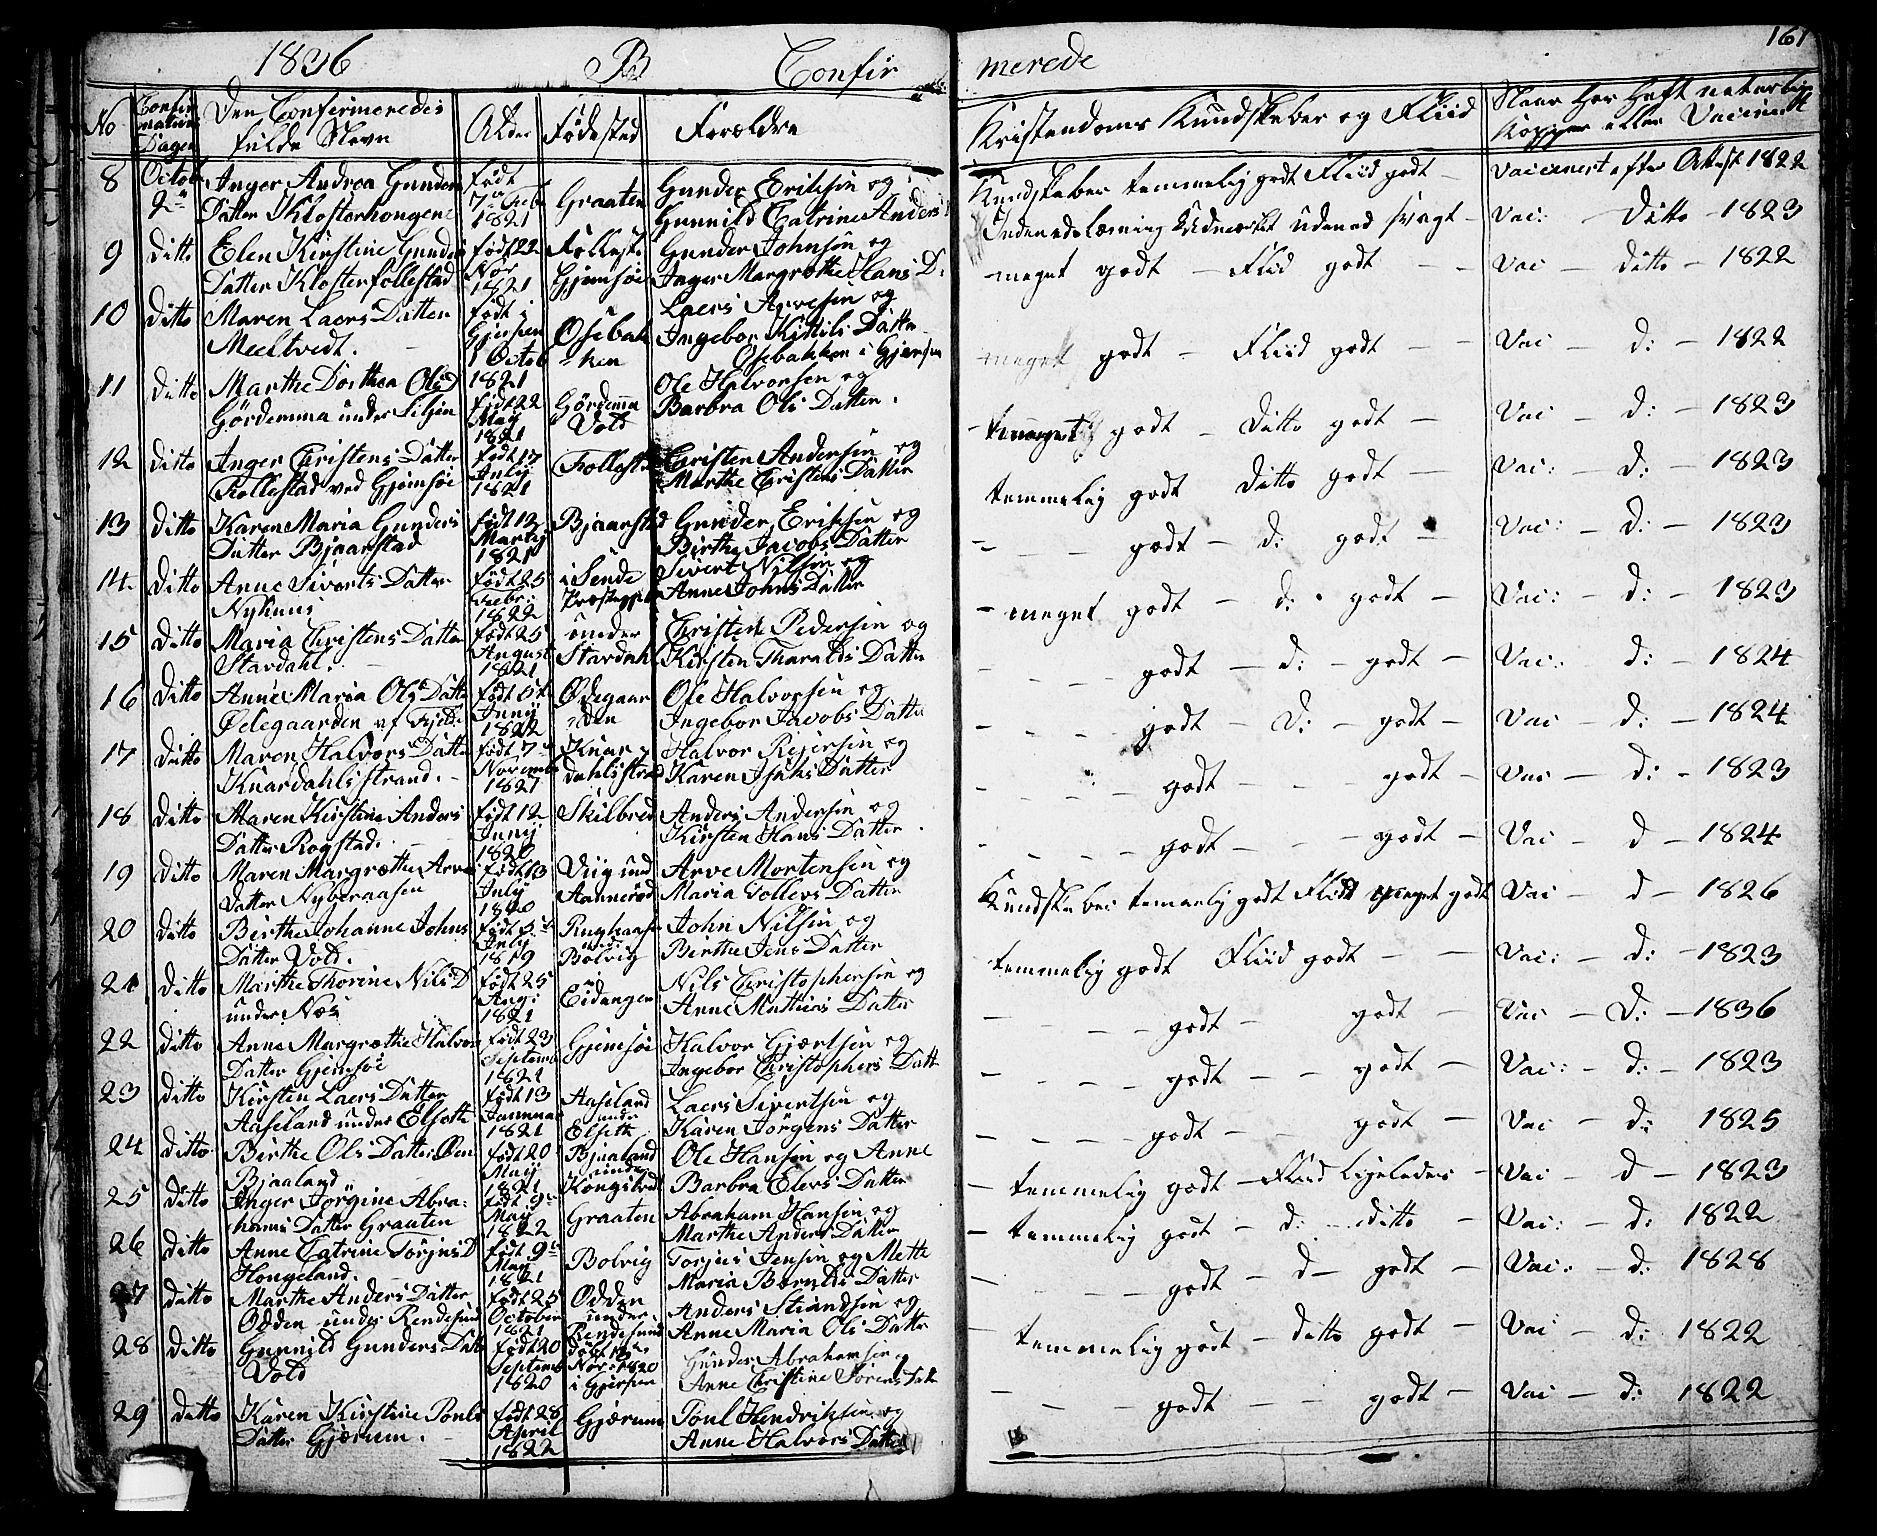 1836 B Confir
merede 161
No Confir mations Dagen Den Confirmeredes fulde Navn Alder Fødested Forældre
Kristendoms Kundskaber og Fliid Naar har haft naturlig Kopper eller Vaccinert
8 Octob 2den Inger Andrea Gunders Datter Klosterhougene født 7de Feb 1821 Graaten Gunder Eriksen og Gunnild Catrine Anders
Kundskaber temmelig godt Fliid godt – Vaccinert efter Attest 1822
9 Ditto Elen Kirstine Gunders Datter Klosterfollestad født 22 Nov 1821 Follest. Gjemsøe Gunder Johnsen og Inger Margrethe Hans D:
Indenadslæsning udenad svagt – Vac: Ditto – 1823
meget godt – Fliid godt – – Vac – ditto – 1822
10 Ditto Maren Laers Datter Meeltvedt. født i Gjerpen 1 Octob 1821 Osebakken Laers Arvesen og Ingebor Kittils Datter Osebakken i Gjerpen
meget godt – Fliid godt – – Vac – d: – 1822
11 Ditto Marthe Dorthea Ols D Gördemma under Siljen født 22 May 1821 Gördemma Vold Ole Halvorsen og Barbra Ols Datter.
godt – Ditto godt – Vac – d: – 1823
12 Ditto Inger Christens Datter Follestad ved Gjemsöe født 17 July 1821 Follestad Christen Andersen og Marthe Christens Datter
temmelig godt Ditto godt – Vac: – D: – 1823
13 Ditto Karen Maria Gunders Datter Bjaarstad født 13 Martij 1821 Bjaarstad Gunder Eriksen og Birthe Jacobs Datter
– – – godt – D: godt – Vac: – D: – 1823
14 Ditto Anne Siverts Datter Nyhuus født 25 Febr: 1822 i Sende Præstegjeld Sivert Nilsen og Anne Johns Datter
– meget godt – d: godt – Vac: – d: – 1823
15 Ditto Maria Christens Datter Stavdahl. født 25 August 1821 under Stavdahl Christen Pedersen og Kirsten Tharalds Datter
– – – godt – d: – godt – Vac: d: – 1824
16 Ditto Anne Maria Ols Datter Ødegaarden født 5te Juny 1822 Ødegaarden Ole Halvorsen og Ingebor Jacobs Datter
– – – godt – D: – godt – Vac – d: – 1824
17 Ditto Maren Halvors Datter Knardahlsstrand. født 7de Novemb 1821 Knardahlsstrand Halvor Reiersen og Karen Isaks Datter
– – – – godt – – godt – Vac – d: – 1823
18 Ditto Maren Kirstine Anders Datter Rogstad. født 12 Juny 1820 Skilbred Anders Andersen og Kirsten Hans Datter.
– – – – godt – – – godt – Vac d – 1824
19 Ditto Maren Margrethe Arves Datter Nyberaasen født 13 July 1820 Viig und Aannerød Arve Mortensen og Maria Tollevs Datter
Kundskaber temmelig godt Fliid meget godt Vac – d – 1826
20 Ditto Birthe Johanne Johns Datter Vold. født 5te July 1819 ved Bolvig John Nilsen og Birthe Jens Datter
temmelig godt Fliid godt – – Vac: – d: – 1823
21 Ditto Marthe Thorine Nils D under Næs født 25 Aug: 1821 i Eidanger Nils Christophersen og Anne Mathies Datter
– – – – godt – godt – Vac – D: – 1836
22 Ditto Anne Margrethe Halvors Datter Gjemsöe født 23 Septemb 1821 Gjemsøe Halvor Gjertsen og Ingebor Christophers Datt
– – – – godt – – godt – Vac: – d: – 1823
23 Ditto Kirsten Laers Datter Aaseland under Elsette født 13 Januar 1821 Aaseland under Elseth Laers Sivertsen og Karen Jörgens Datter
– – – – godt – – godt – Vac – d: 1825
24 Ditto Birthe Ols Datter Bjaaland født 20 May 1821 Bjaaland under Kongsbrot Ole Hansen og Anne Barbra Elevs Datter
– temmelig godt – Fliid ligeledes – Vac d – 1823
25 Ditto Inger Jorgine Abrahams Datter Graaten født 9de May 1822 Graaten Abraham Hansen og Marthe Anders Datter
– temmelig godt – d: ditto – Vac: – d: 1822
26 Ditto Anne Catrine Torjus D Hougeland. født 9de May 1821 Bolvig Torjus Jensen og Mette Maria Bernds Datter
– – – godt – d – godt – Vac: – d: 1828
27 Ditto Marthe Anders Datter Odden under Rendesund født 25 October 1821 Odden under Rendesund Anders Strandsen og Anne Maria Ols Datter
– temmelig godt – ditto godt – Vac – d: 1822
28 Ditto Gunnild Gunders Datter Vold født 20 Septemb 1820 døbt Nov: 1820 i Gjerpen Gunder Abrahamsen og Anne Christine Sørens Datt
– – – godt – – godt – Vac – d: 1822
29 Ditto Karen Kirstine Pouls Datter Gjærum. født 28 April 1822 Gjærum Poul Hendriksen og Anne Halvors Datter